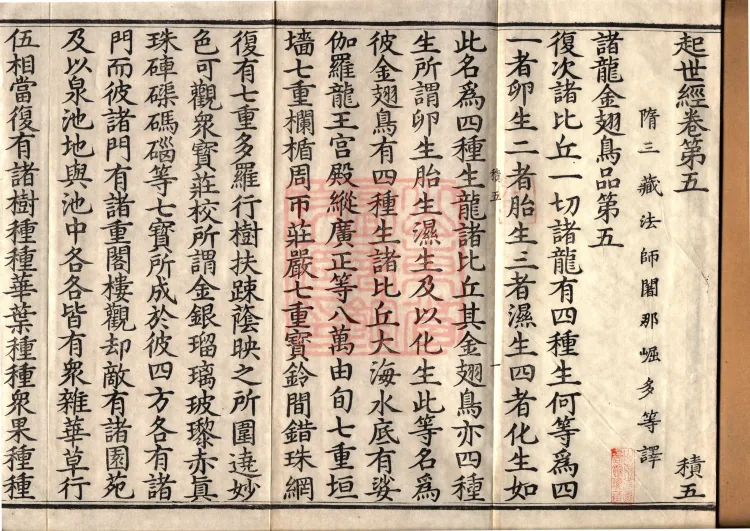 起世經卷第五 積五
隋三藏法師闍那崛多等譯
諸龍金翅鳥品第五
復次諸比丘一切諸龍有四種生何等爲四
一者卵生二者胎生三者濕生四者化生如
積五 一
此名爲四種生龍諸比丘其金翅鳥亦四種
生所謂卵生胎生濕生及以化生此等名爲
彼金翅鳥有四種生諸比丘大海水底有娑
伽羅龍王宮殿縱廣正等八萬由旬七重垣
墻七重欄楯周帀莊嚴七重寶鈴間錯珠網
復有七重多羅行樹扶踈蔭映之所圍遶妙
色可觀衆寶莊校所謂金銀瑠璃玻瓈赤眞
珠硨磲碼碯等七寶所成於彼四方各有諸
門而彼諸門有諸重閣樓觀却敵有諸園苑
及以泉池地與池中各各皆有衆雜華草行
伍相當復有諸樹種種華葉種種衆果種種